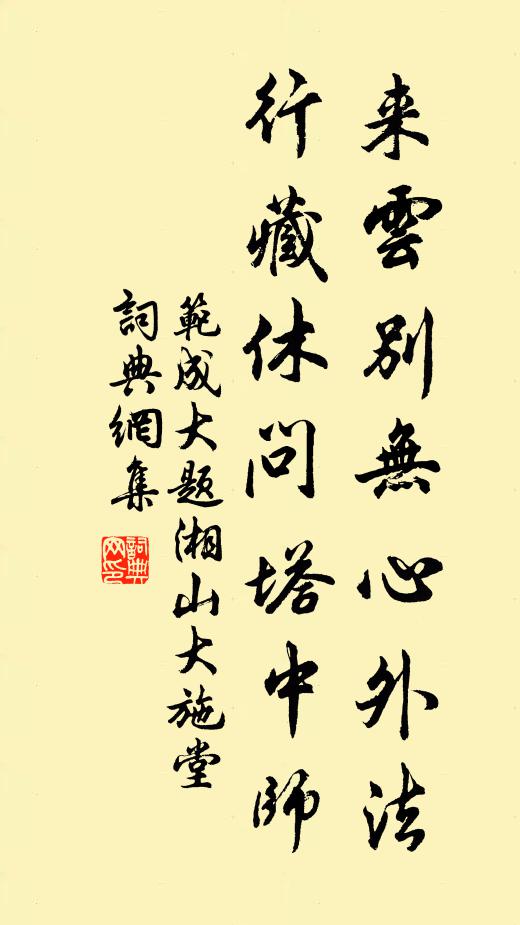 来雲別無心外法
行藏休問塔中師
範成大题湘山大施堂
詞典網集
詞典網印